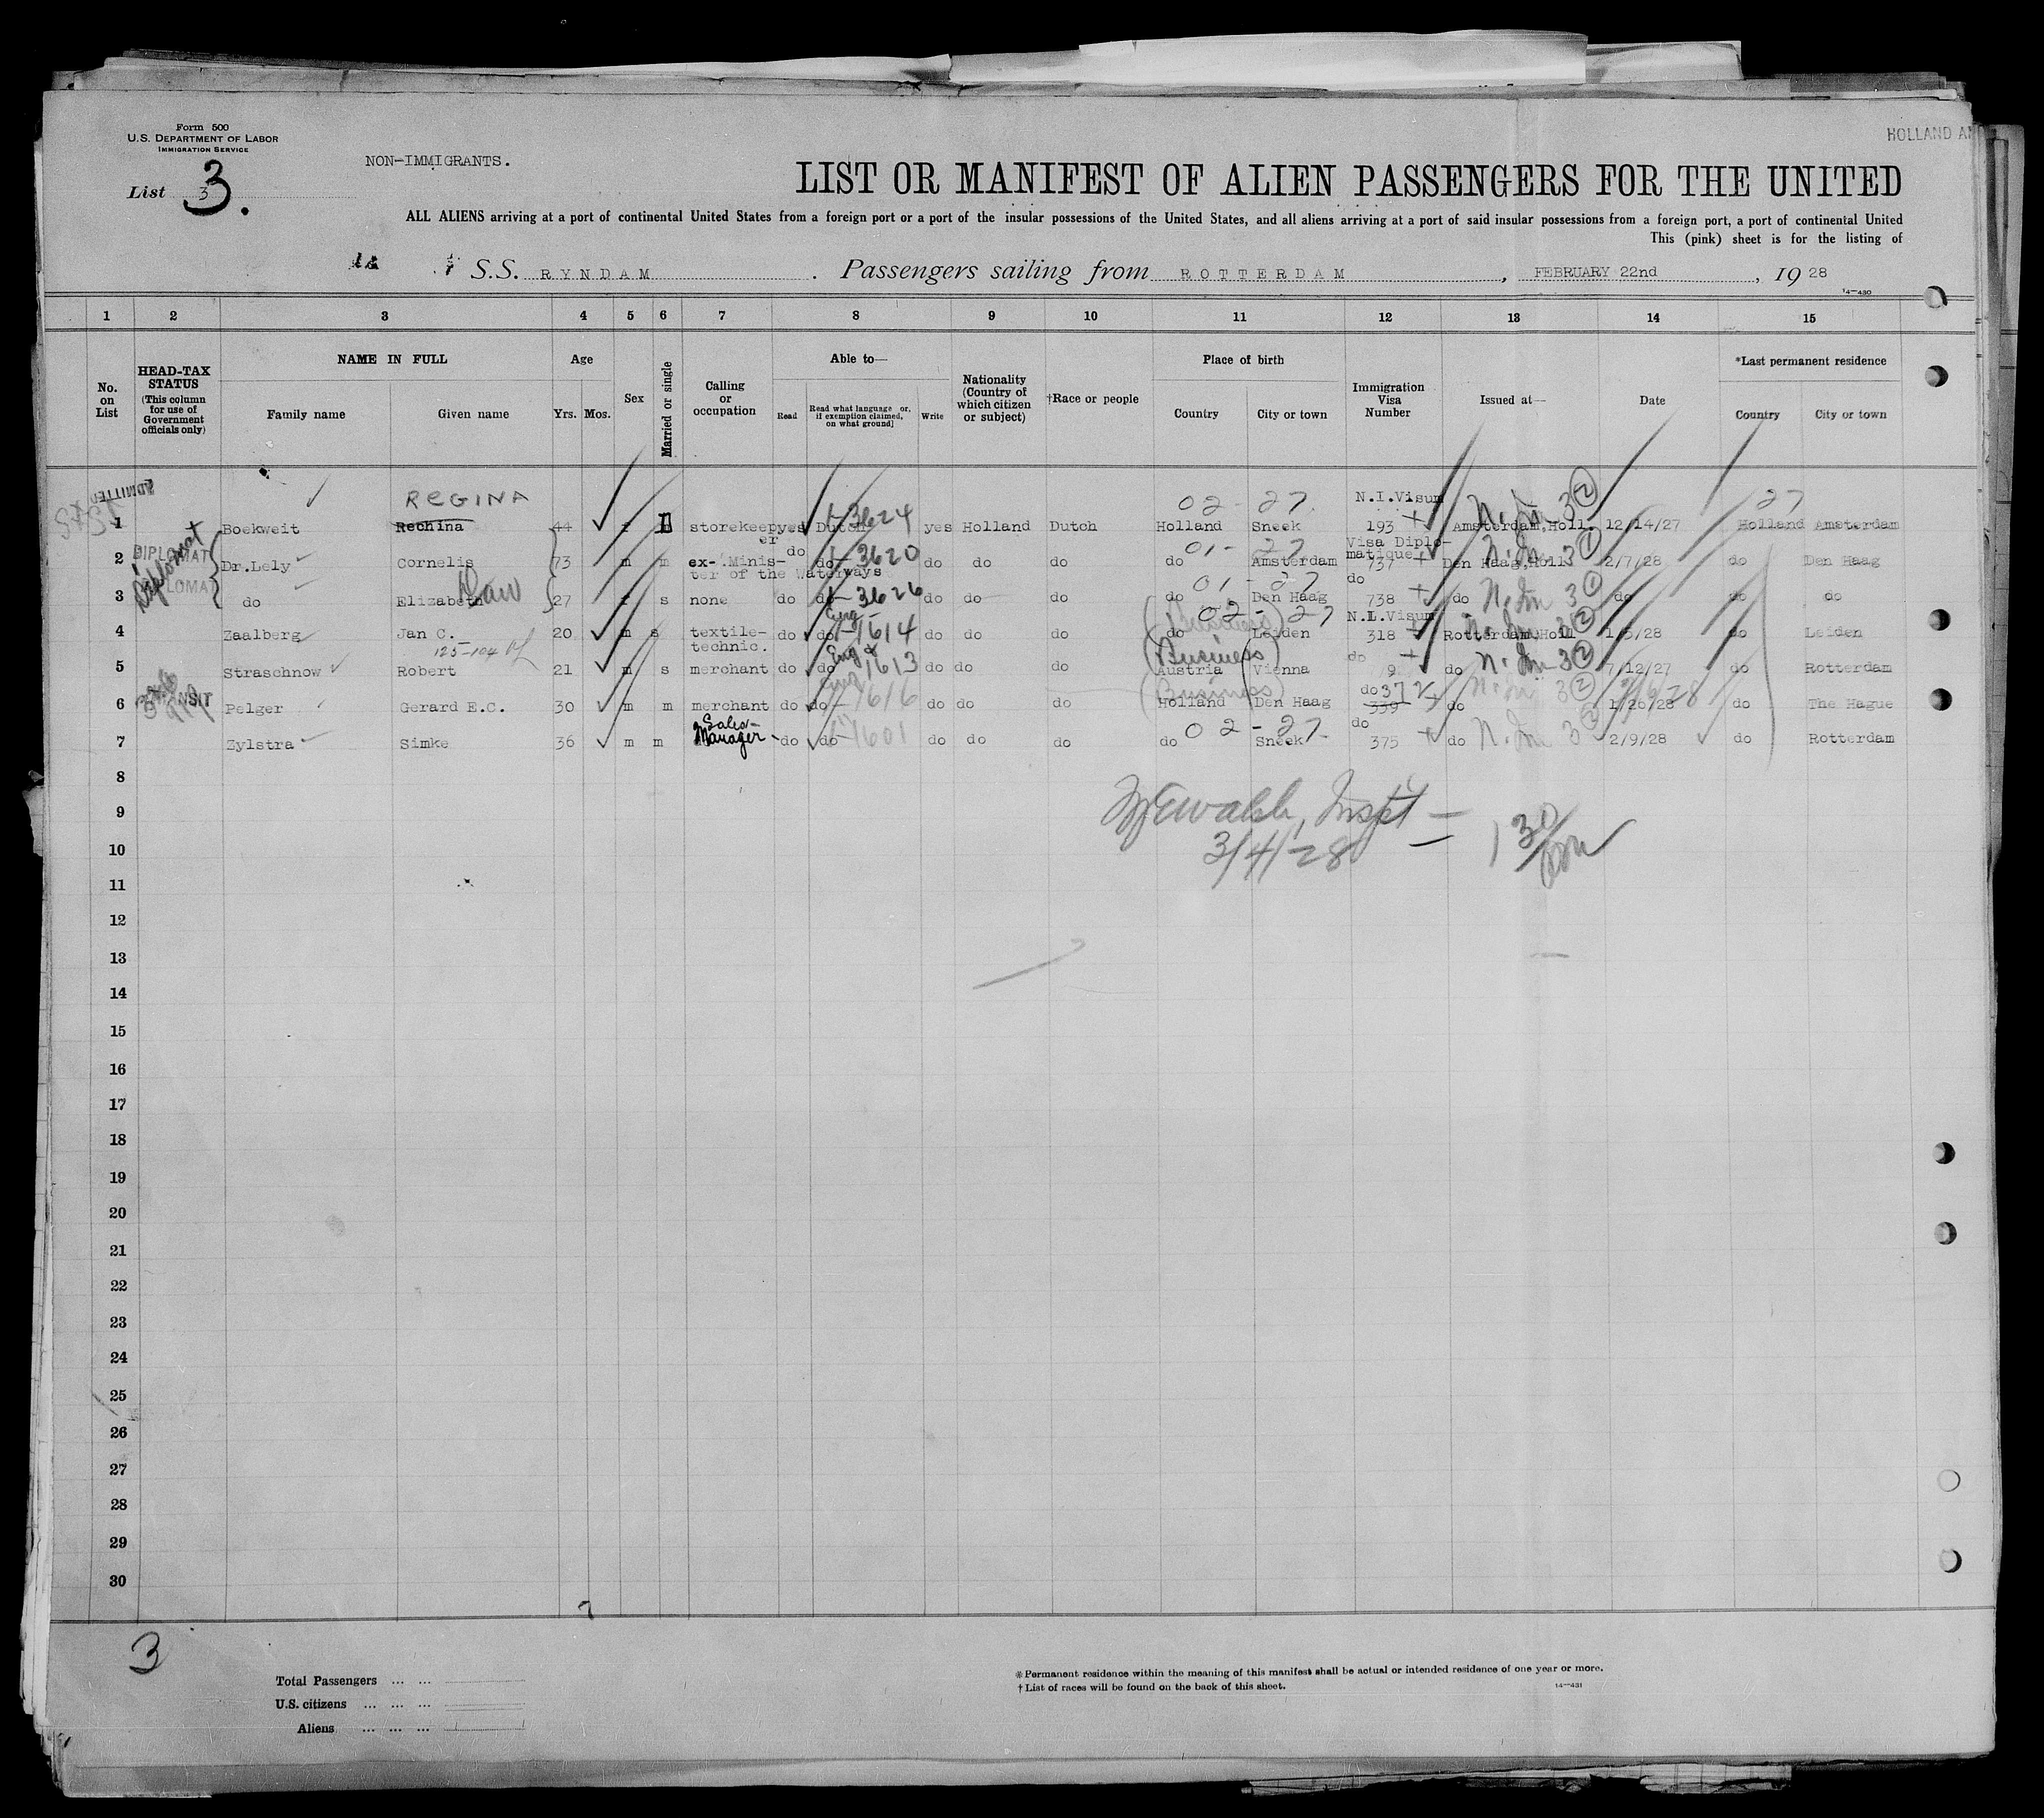 Form 500
U.S. DEPARTMENT OF LABOR
IMMIGRATION SERVICE
HOLLAND AM
NON-IMMIGRANTS.
List 3
3.
LIST OR MANIFEST OF ALIEN PASSENGERS FOR THE UNITED
ALL ALIENS arriving at a port of continental United States from a foreign port or a port of the insular possessions of the United States, and all aliens arriving at a port of said insular possessions from a foreign port, a port of continental United
This (pink) sheet is for the listing of
S.S. RYNDAM. Passengers sailing from ROTTERDAM, FEBRUARY 22nd, 1928
14—430
1 2 3 4 5 6 7 8 9 10 11 12 13 14 15
No. on List
HEAD-TAX STATUS (This column for use of Government officials only)
NAME IN FULL
Family name Given name
Age
Yrs. Mos.
Sex
Married or single
Calling or occupation
Able to—
Read Read what language [or, if exemption claimed, on what ground] Write
Nationality (Country of which citizen or subject)
†Race or people
Place of birth
Country City or town
Immigration Visa Number
Issued at—
Date
*Last permanent residence
Country City or town
ADMITTED
REGINA 02-27. N.I.Visum 27
1 Boekweit Rechina 44 f m storekeeper yes Dutch 1-3624 yes Holland Dutch Holland Sneek 193 Amsterdam,Holl. 12/14/27 Holland Amsterdam
Diplomat
2 DIPLOMAT Dr.Lely Cornelis 73 m m ex-Minister of the Waterways do do 1-3620 do do do do 01-27 Amsterdam Visa Diplomatique 737 Den Haag,Holl 2/7/28 do Den Haag
3 DIPLOMAT do Elizabeth Daw 27 f s none do do 1-3626 do do do do 01-27 Den Haag do 738 do do do do
4 Zaalberg Jan C. 20 m s textile-technic. do do Eng 1-1614 do do do do 02-27 (Business) Leiden N.I.Visum 318 Rotterdam,Holl 1/5/28 do Leiden
125-104
5 Straschnow Robert 21 m s merchant do do Eng 1613 do do do (Business) Austria Vienna do 9 do 7/12/27 do Rotterdam
6 TRANSIT Pelger Gerard E.C. 30 m m merchant do do Eng 1616 do do do (Business) Holland Den Haag do 372 339 do 1/26/28 do The Hague
7 Zylstra Simke 36 m m Sales-Manager do do 1-1601 do do do do 02-27. Sneek do 375 do 2/9/28 do Rotterdam
8
9
Walsh, Inspt —
3/4/28 — 1 30
10
11
12
13
14
15
16
17
18
19
20
21
22
23
24
25
26
27
28
29
30
3
Total Passengers ... ...
U.S. citizens ... ... ...
Aliens ... ... ...
*Permanent residence within the meaning of this manifest shall be actual or intended residence of one year or more.
†List of races will be found on the back of this sheet.
14—431